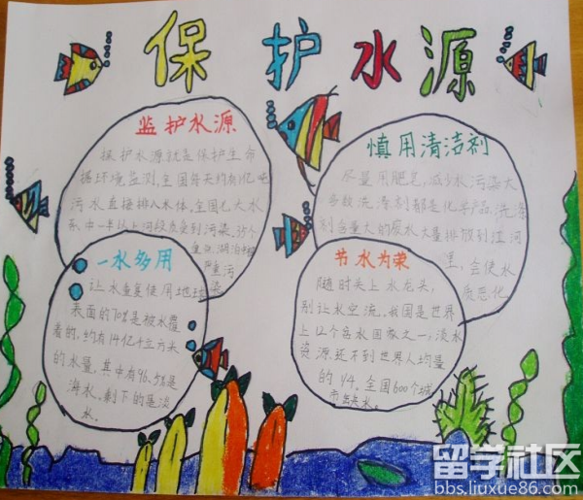 保护水源
监护水源
保护水源就是保护生命
据环境监测,全国每天约有1亿吨
污水直接排入水体,全国七大水
系中一半以上河段受到污染,35个
重点湖泊中
严重污
染
慎用清洁剂
尽量用肥皂,减少水污染大
多数洗清剂都是化学产品,洗涤
剂含量大的废水大量排放到江河
里,会使水
质恶化
一水多用
让水重复使用地球
表面的70%是被水覆
盖的,约有14亿千立方米
的水量,其中有96.5%是
海水,剩下的是淡
水。
节水为荣
随时关上水龙头,
别让水空流。我国是世界
上12个贫水国家之一,淡水
资源还不到世界人均量
的1/4。全国600个城
市缺水。
留学社区
bbs.liuxue86.com